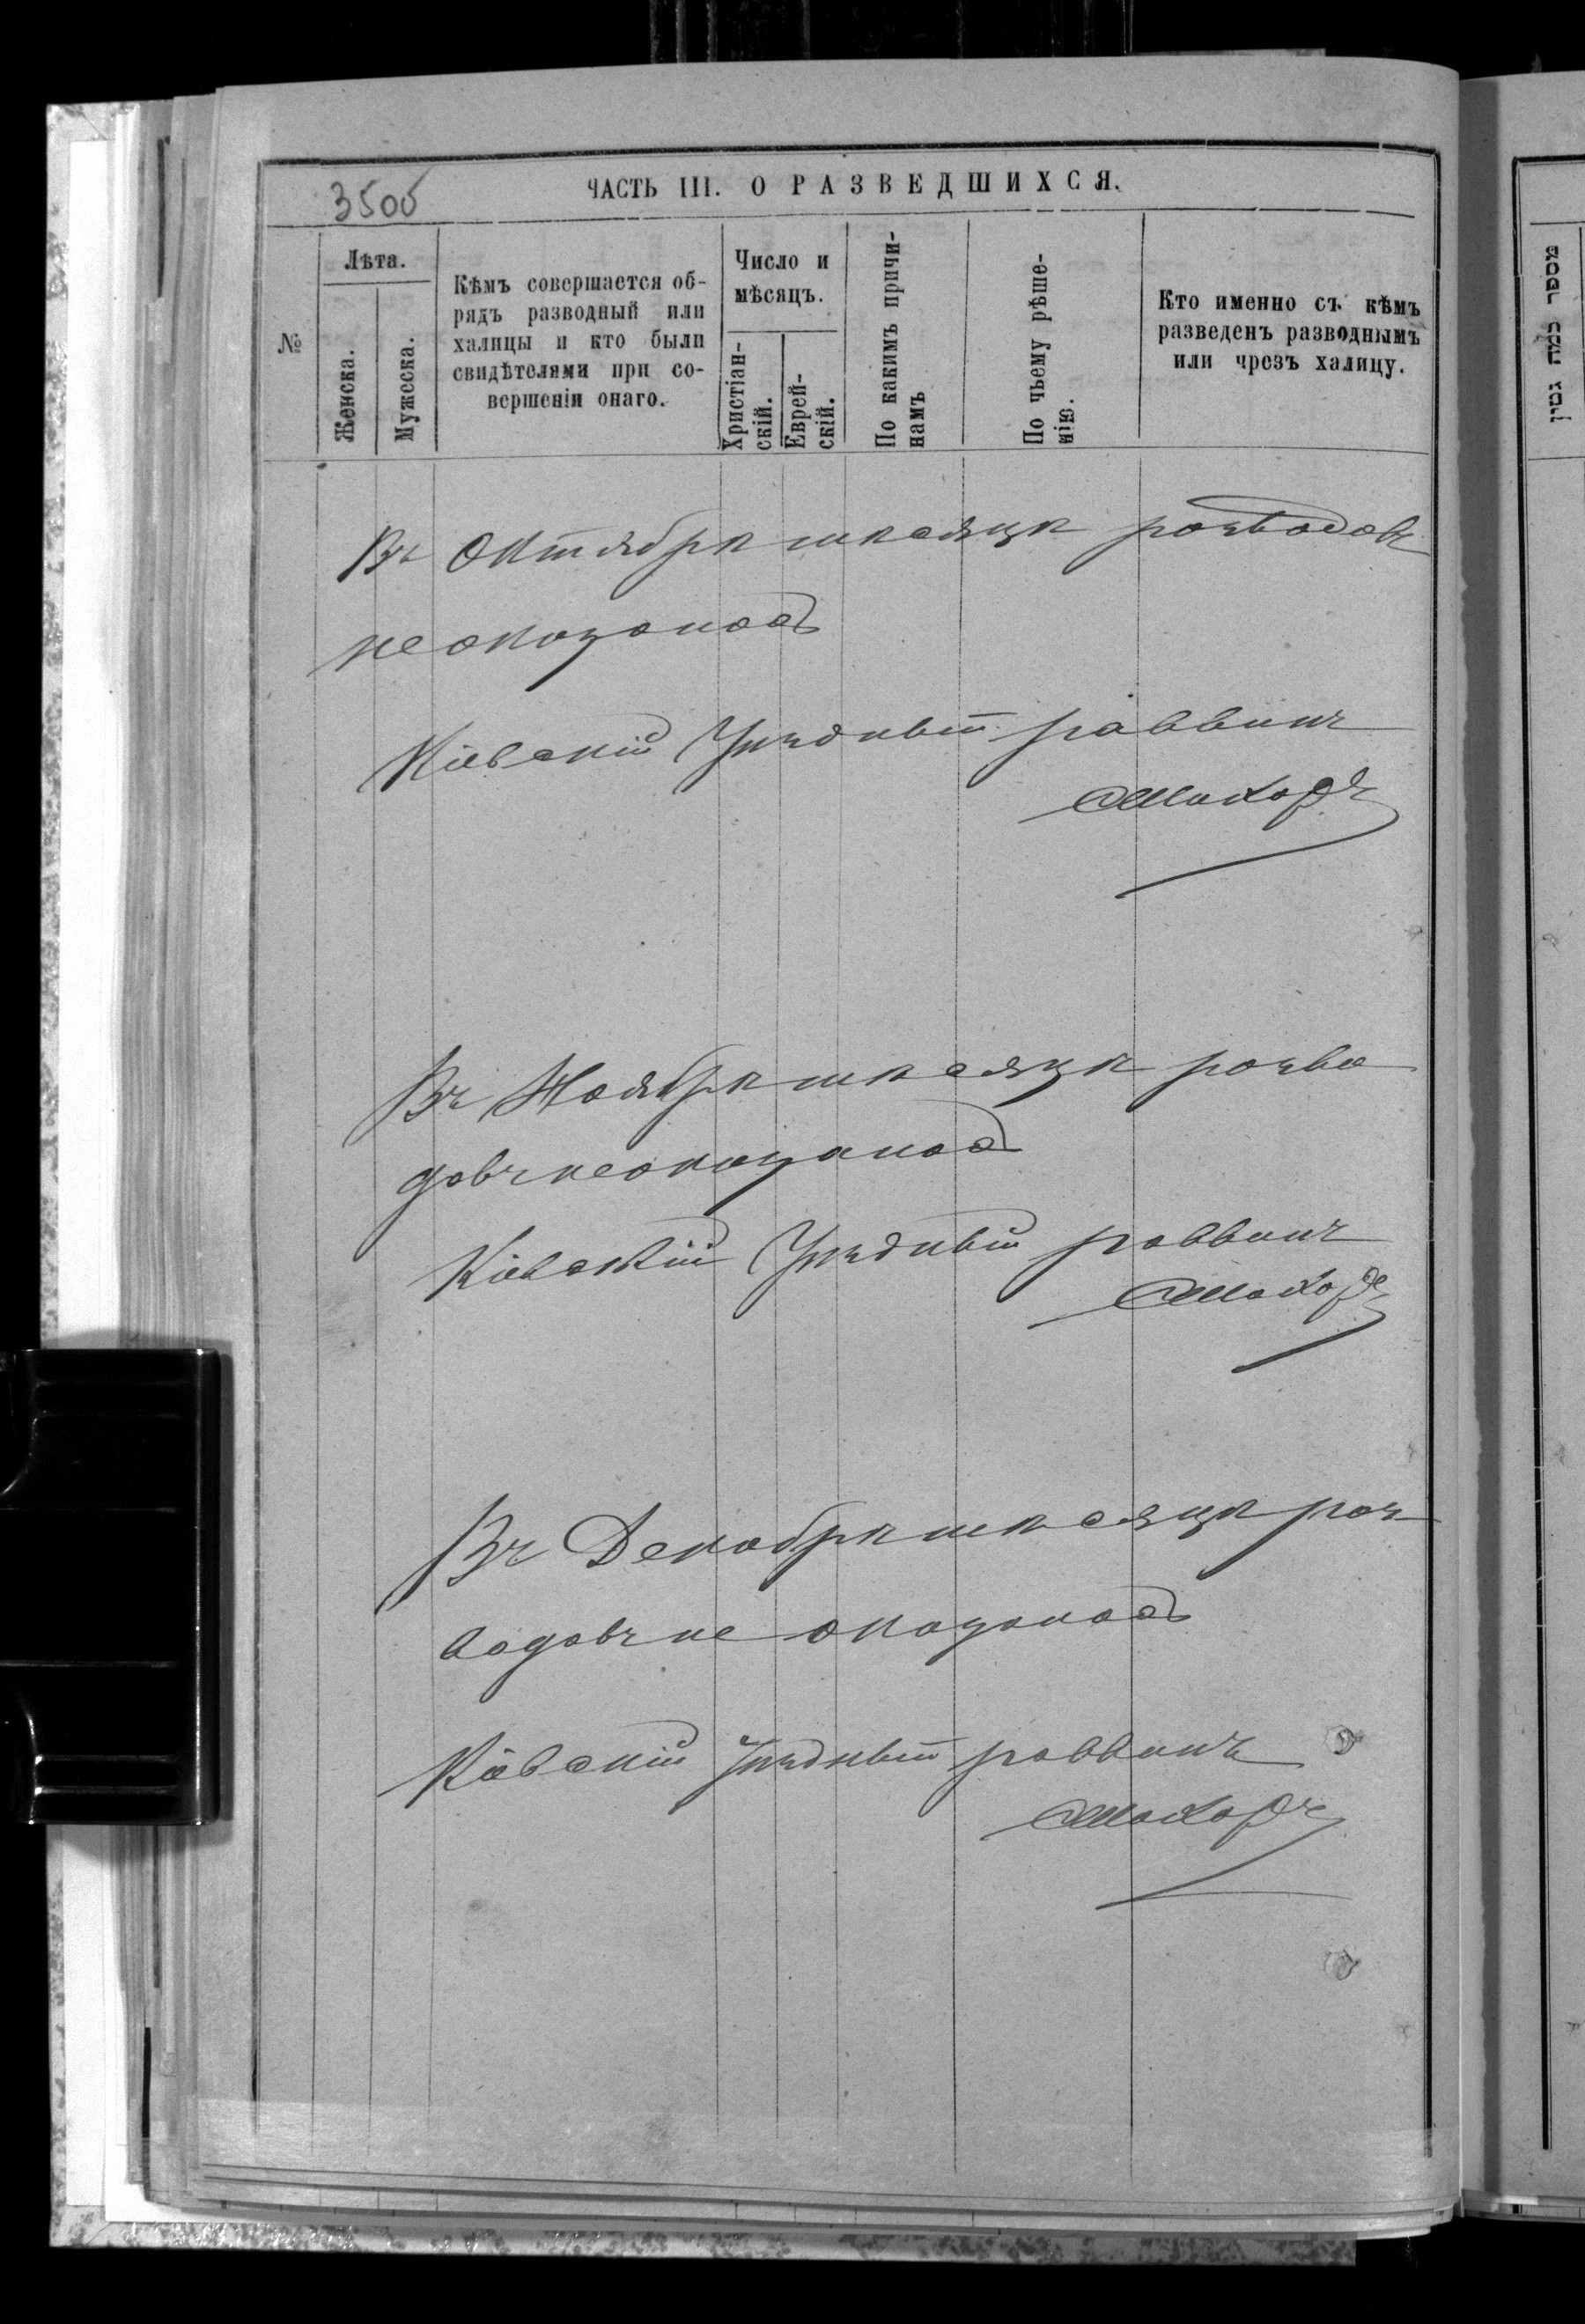 350б
ЧАСТЬ III. О РАЗВЕДШИХСЯ.
№
Лѣта.
Женска.
Мужеска.
Кѣмъ совершается об-
рядъ разводный или
халицы и кто были
свидѣтелями при со-
вершеніи онаго.
Число и
мѣсяцъ.
Христіан-
скій.
Еврей-
скій.
По какимъ причи-
намъ
По чьему рѣше-
нію.
Кто именно съ кѣмъ
разведенъ разводнымъ
или чрезъ халицу.
Въ Октябрѣ мѣсяцѣ розводовъ
неоказалось
Кіевскій Уѣздный раввинъ
Въ Ноябрѣ мѣсяцѣ розво
довъ неоказалось
Кіевскій Уѣздный раввинъ
Въ Декабрѣ мѣсяцѣ роз
водовъ не оказалось
Кіевскій Уѣздный раввинъ
מספר כמה גטין